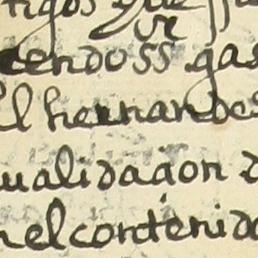 tigos que
ur
cendoss gas
el hernandes
ualidaçion d
nel contenido